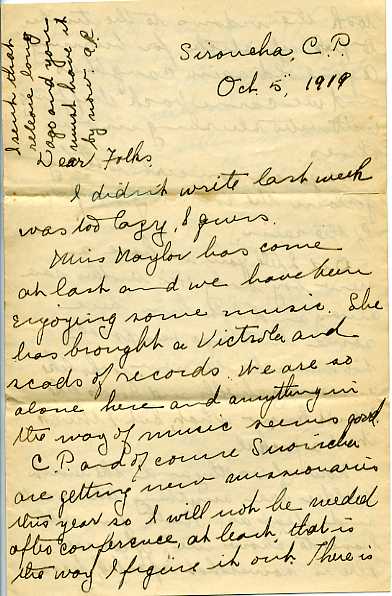 I sent that
release long
ago and you
must have it
by now. a.R.
Sironcha, C.P.
Oct. 5, 1919
Dear Folks
I didn't write last week
was too lazy, I guess.
Miss Naylor has come
at last and we have been
enjoying some music. She
has brought a Victrola and
scads of records. We are so
alone here and anything in
the way of music seems good.
C.P. and of course Sironcha
are getting new missionaries
this year so I will not be needed
after conference, at least, that is
the way I figure it out. There is